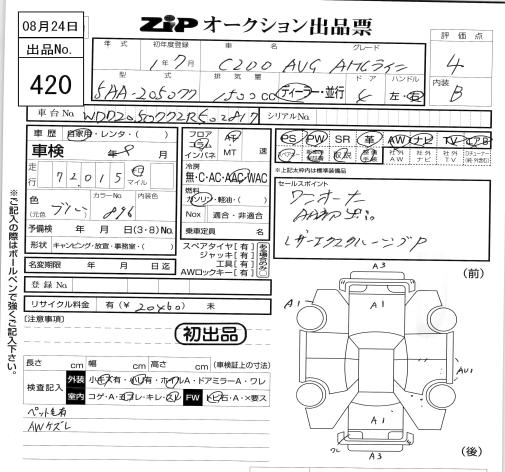 08月24日
出品No.
420
ZiP オークション出品票
年式 初年度登録 車名 グレード
1年7月 C200 AVG AMGライン
型式 排気量 ドア ハンドル
5AA-205077 1500cc ディーラー・並行 4 左・右
評価点
4
内装
B
車台No. シリアルNo.
車歴 自家用・レンタ・( )
車検 年 月
走行 72,015 キロ マイル
色 (元色) カラーNo. 内装色
896
予備検 年 月 日 (3・8) No.
形状 キャンピング・放宣・事務室・( )
名変期限 年 月 日迄
登録No.
リサイクル料金 有 (¥ 20460) 未
フロア コラム インパネ AT ・MT 速
冷房
無・C・AC・AAC・WAC
燃料
ガソリン・軽油・( )
Nox 適合・非適合
乗車定員 名
スペアタイヤ [有]
ジャッキ [有]
工具 [有]
AWロックキー [有]
ある場合のみ○
PS PW SR 革 AW ナビ TV エアB
社外AW 社外ナビ 社外TV
*上記太枠内は標準装備品
セールスポイント
ワンオーナー
(注意事項)
初出品
長さ cm 幅 cm 高さ cm (車検証上の寸法)
検査記入
外装 小キズ有・小凹有・ホイルA・ドアミラーA・ワレ
室内 コゲ・A・ヨゴレ・キレ・スレ FW トビ石・A・×要ス
ペット毛有
AWケズレ
※ご記入の際はボールペンで強くご記入下さい。
(前)
A3
A1
A1
AU1
A1
ワレ
A3
(後)